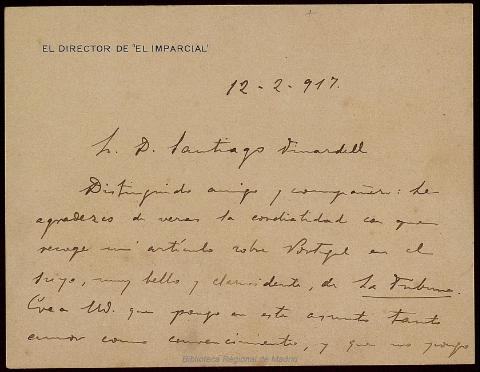 EL DIRECTOR DE 'EL IMPARCIAL'
12-2-917.
S. D. Santiago Vinardell
Distinguido amigo y compañero: Le
agradezco de veras la cordialidad con que
recoge mi artículo sobre Portugal en el
suyo, muy bello y clarividente, de La Tribuna.
Crea Ud. que pongo en este asunto tanto
amor como convencimiento, y que no pongo
Biblioteca Regional de Madrid